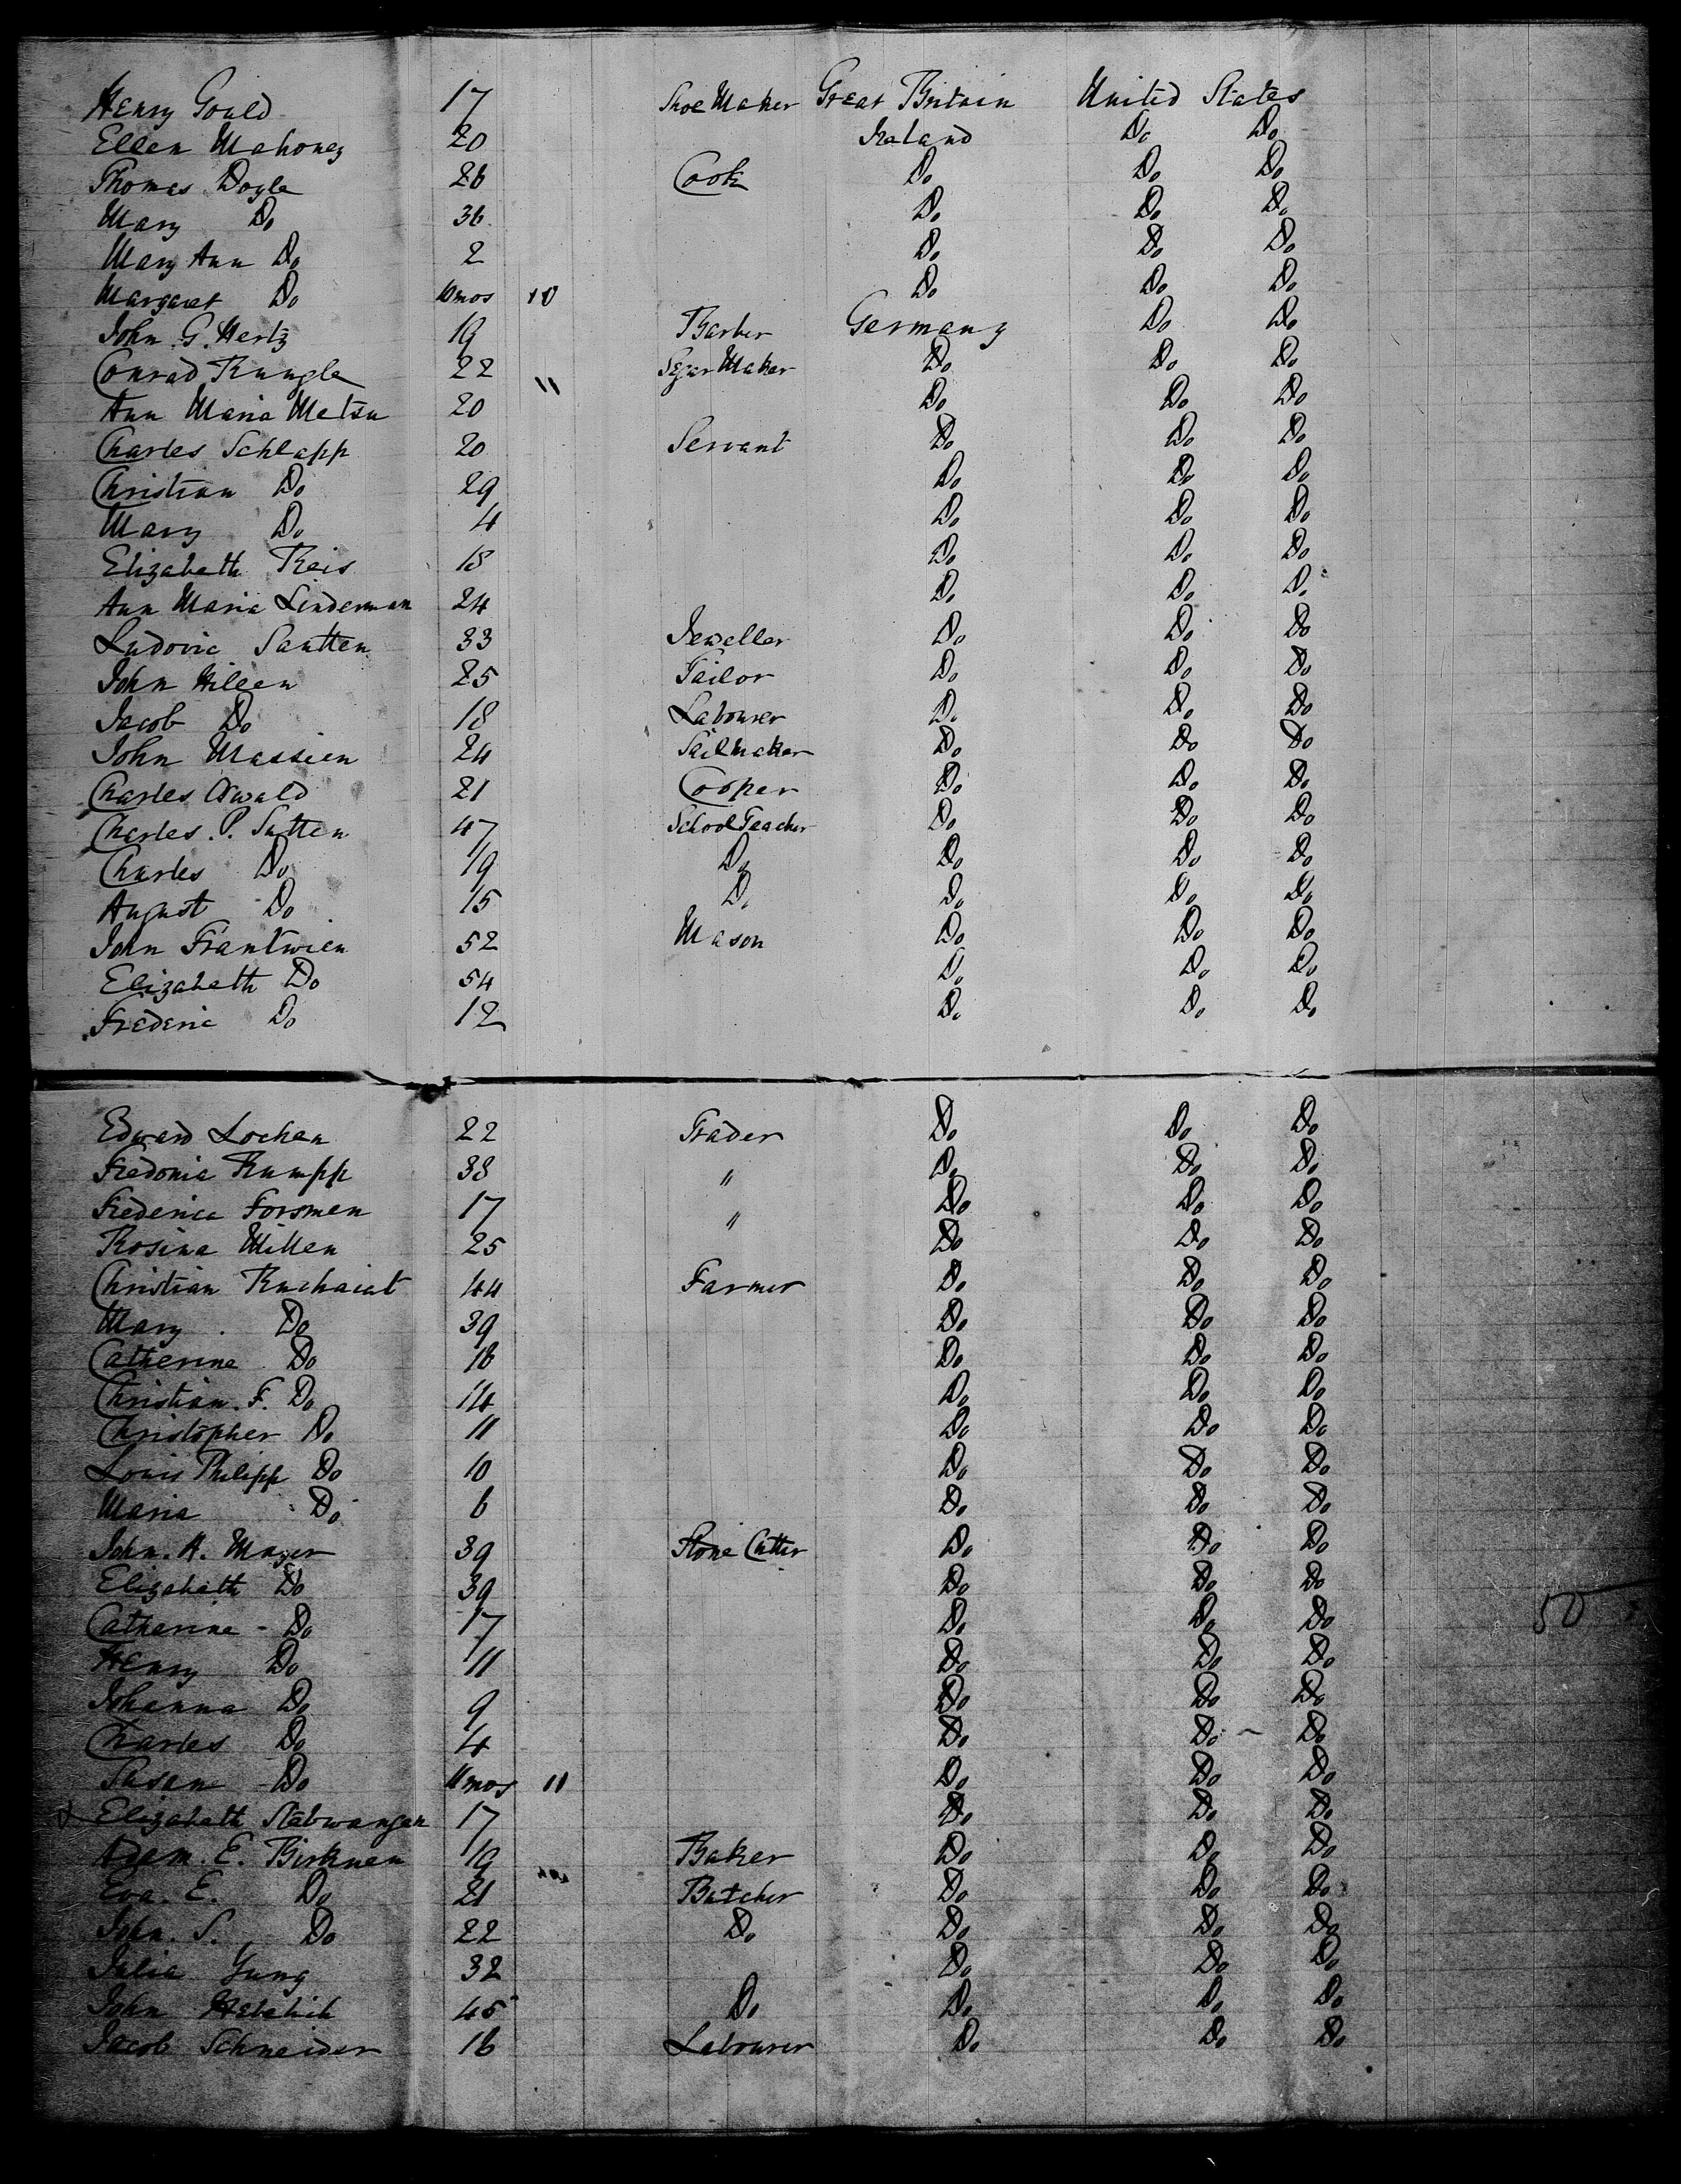 Henry Gould 17 Shoe Maker Great Britain United States
Ellen Mahoney 20 Ireland Do Do
Thomas Doyle 26 Cook Do Do Do
Mary Do 36 Do Do Do
Mary Ann Do 2 Do Do Do
Margaret Do 10 mos 10 Do Do Do
John G. Hertz 19 Barber Germany Do Do
Conrad Rungle 22 Segar Maker Do Do Do
Ann Maria Metzu 20 11 Do Do Do
Charles Schlapp 20 Servant Do Do Do
Christian Do 29 Do Do Do
Mary Do 4 Do Do Do
Elizabeth Reis 18 Do Do Do
Ann Maria Linderman 24 Do Do Do
Ludovic Sautten 33 Jeweller Do Do Do
John Hilleen 25 Tailor Do Do Do
Jacob Do 18 Labourer Do Do Do
John Massien 24 Sailmaker Do Do Do
Charles Oswald 21 Cooper Do Do Do
Charles. P. Sutten 47 School Teacher Do Do Do
Charles Do 19 Do Do Do Do
August Do 15 Do Do Do Do
John Frantwien 52 Mason Do Do Do
Elizabeth Do 54 Do Do Do
Frederic Do 12 Do Do Do
Edward Lochen 22 Trader Do Do Do
Fredonia Rumpp 38 " Do Do Do
Frederica Forsmen 17 " Do Do Do
Rosina Millen 25 Do Do Do
Christian 44 Farmer Do Do Do
Mary Do 39 Do Do Do
Catherine Do 16 Do Do Do
Christian. F. Do 14 Do Do Do
Christopher Do 11 Do Do Do
Louis Philipp Do 10 Do Do Do
Maria Do 6 Do Do Do
John. A. Mayer 39 Stone Cutter Do Do Do
Elizabeth Do 39 Do Do Do
Catherine - Do 17 Do Do Do 50
Henry Do 11 Do Do Do
Johanna Do 9 Do Do Do
Charles Do 4 Do Do Do
Susan Do 11 mos 11 Do Do Do
Elizabeth 17 Do Do Do
Adam. E. Birknen 19 Baker Do Do Do
Eva. E. Do 21 Butcher Do Do Do
John. S. Do 22 Do Do Do Do
Julia Yung 32 Do Do Do
John 45 Do Do Do Do
Jacob Schneider 16 Labourer Do Do Do